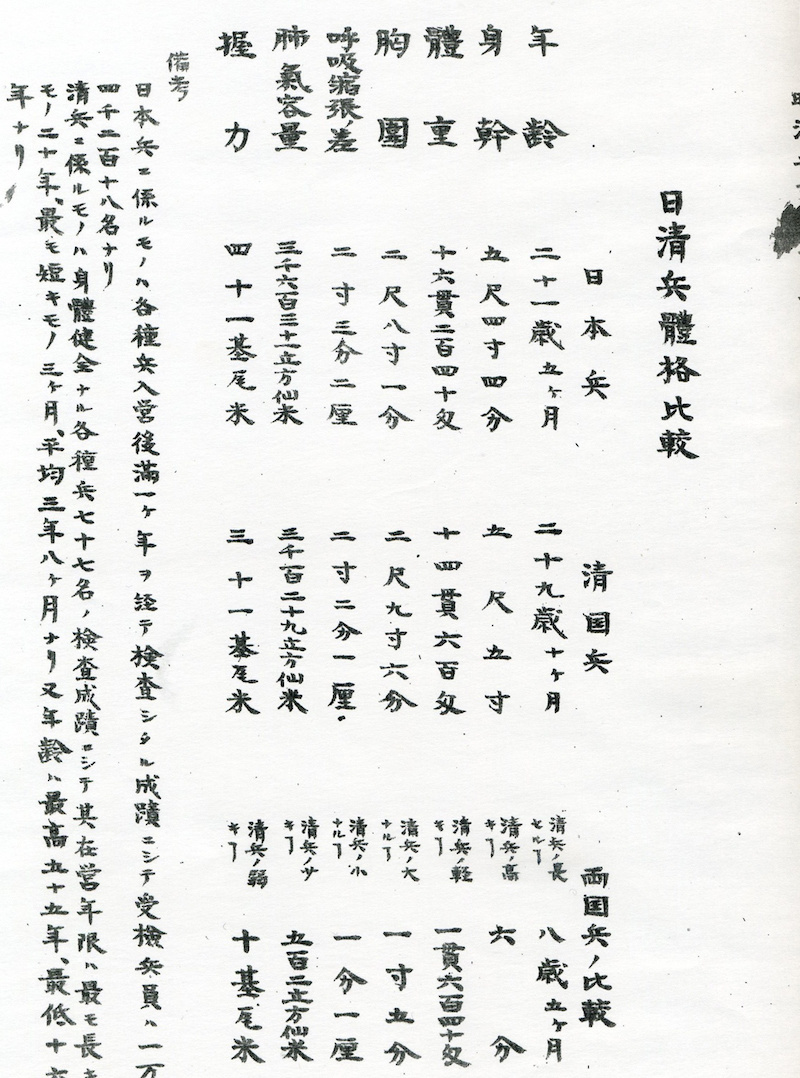 日清兵體格比較
日本兵　清国兵　両国兵ノ比較
年齢　二十一歳五ヶ月　二十九歳十ヶ月　清兵ノ長セルヿ　八歳五ヶ月
身幹　五尺四寸四分　五尺五寸　清兵ノ高キヿ　六分
體重　十六貫二百四十匁　十四貫六百匁　清兵ノ軽キヿ　一貫六百四十匁
胸圍　二尺八寸一分　二尺九寸六分　清兵ノ大ナルヿ　一寸五分
呼吸縮張ノ差　二寸三分二厘　二寸二分一厘　清兵ノ小ナルヿ　一分一厘
肺氣容量　三千六百三十一立方仙米　三千百二十九立方仙米　清兵ノ少キヿ　五百二立方仙米
握力　四十一基尾米　三十一基尾米　清兵ノ弱キヿ　十基尾米
備考
日本兵ニ係ルモノハ各種兵入営後滿一ヶ年ヲ経テ検査シタル成蹟ニシテ受檢兵員ハ一万
四千二百十八名ナリ
清兵ニ係ルモノハ身體健全ナル各種兵七十七名ノ検査成蹟ニシテ其在営年限ハ最モ長キ
モノ二十年、最モ短キモノ三ヶ月、平均三年八ヶ月ナリ又年齢ハ最高五十五年、最低十六
年ナリ